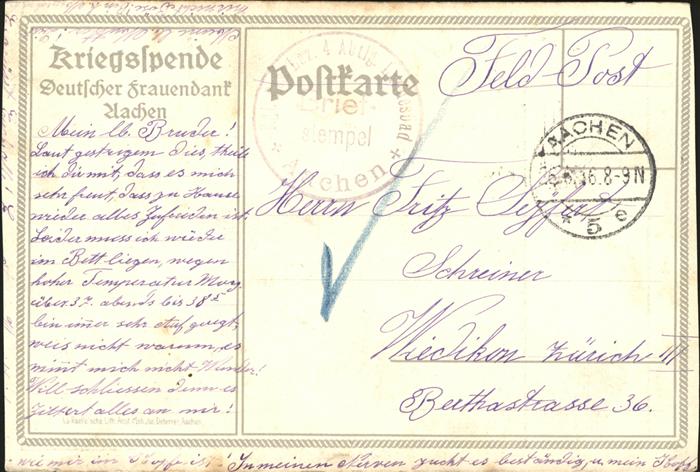 Kriegsspende
Deutscher Frauendank
Aachen
Mein lb. Bruder!
Laut gestrigem dies, theile
ich dir mit, dass es mich
sehr freut, dass zu Hause
wieder alles Zufrieden ist.
Leider muss ich wieder
im Bett liegen, wegen
hoher Temperatur Morg.
über 37. abends bis 38⁵
bin immer sehr aufgeregt,
weis nicht warum, es
nimmt mich nicht Wunder!
Will schliessen denn es
Zittert alles an mir!
Postkarte
Feld-Post
4 Abtlg.
Brief-
stempel
* Aachen *
AACHEN
16.8-9N
* 5 e
Herrn Fritz
Schreiner
Wiedikon Zürich III
Berthastrasse 36.
wie mir im ist! In meinen Nerven zucht es beständig, u. mein